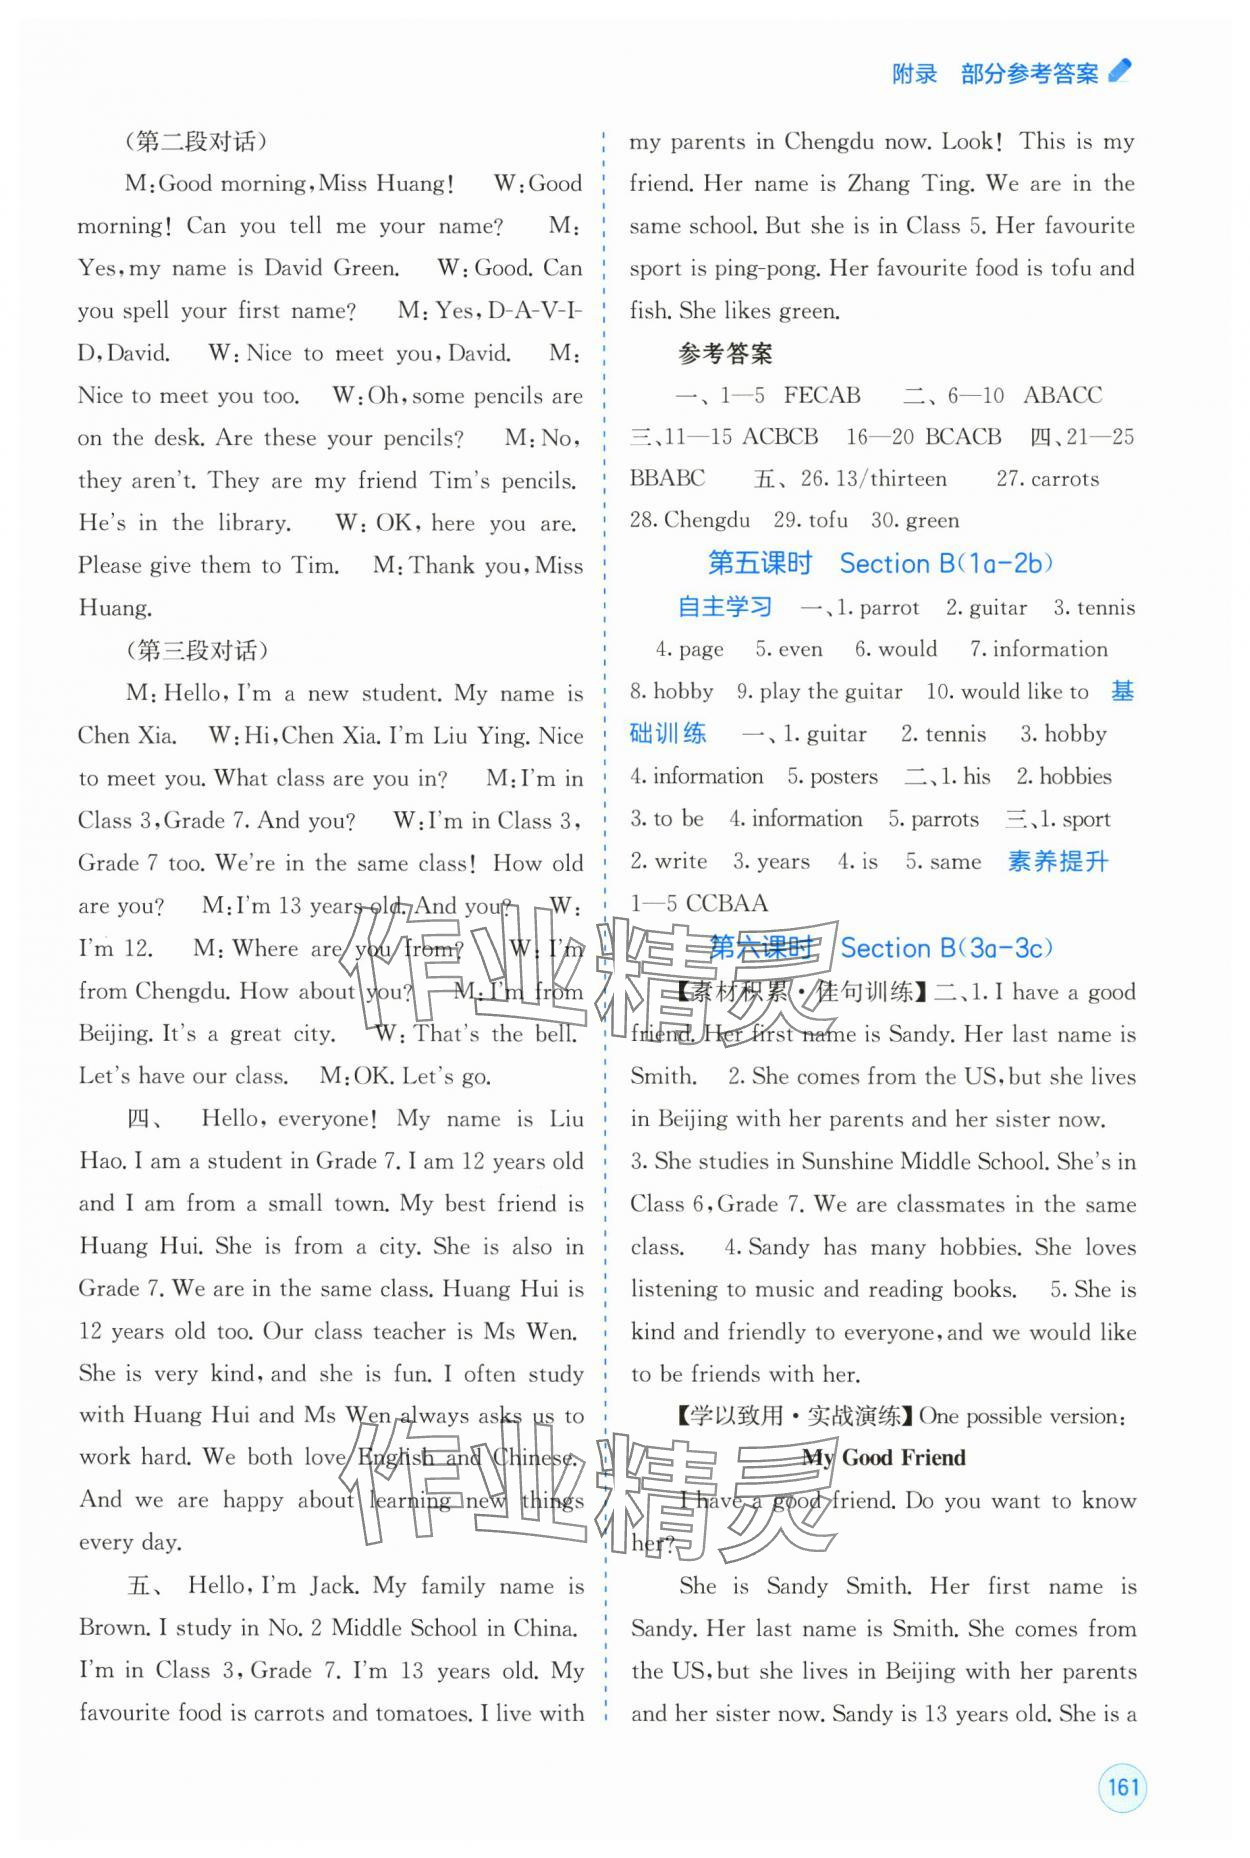 附录　部分参考答案
（第二段对话）
M:Good morning,Miss Huang!　W:Good
morning! Can you tell me your name?　M:
Yes,my name is David Green.　W:Good. Can
you spell your first name?　M:Yes,D-A-V-I-
D,David.　W:Nice to meet you,David.　M:
Nice to meet you too.　W:Oh,some pencils are
on the desk. Are these your pencils?　M:No,
they aren't. They are my friend Tim's pencils.
He's in the library.　W:OK,here you are.
Please give them to Tim.　M:Thank you,Miss
Huang.
（第三段对话）
M:Hello,I'm a new student. My name is
Chen Xia.　W:Hi,Chen Xia. I'm Liu Ying. Nice
to meet you. What class are you in?　M:I'm in
Class 3,Grade 7. And you?　W:I'm in Class 3,
Grade 7 too. We're in the same class! How old
are you?　M:I'm 13 years old. And you?　W:
I'm 12.　M:Where are you from?　W:I'm
from Chengdu. How about you?　M:I'm from
Beijing. It's a great city.　W:That's the bell.
Let's have our class.　M:OK. Let's go.
四、　Hello,everyone! My name is Liu
Hao. I am a student in Grade 7. I am 12 years old
and I am from a small town. My best friend is
Huang Hui. She is from a city. She is also in
Grade 7. We are in the same class. Huang Hui is
12 years old too. Our class teacher is Ms Wen.
She is very kind,and she is fun. I often study
with Huang Hui and Ms Wen always asks us to
work hard. We both love English and Chinese.
And we are happy about learning new things
every day.
五、　Hello,I'm Jack. My family name is
Brown. I study in No. 2 Middle School in China.
I'm in Class 3,Grade 7. I'm 13 years old. My
favourite food is carrots and tomatoes. I live with
my parents in Chengdu now. Look! This is my
friend. Her name is Zhang Ting. We are in the
same school. But she is in Class 5. Her favourite
sport is ping-pong. Her favourite food is tofu and
fish. She likes green.
参考答案
一、1—5 FECAB　二、6—10 ABACC
三、11—15 ACBCB　16—20 BCACB　四、21—25
BBABC　五、26. 13/thirteen　27. carrots
28. Chengdu　29. tofu　30. green
第五课时　Section B(1a-2b)
自主学习　一、1. parrot　2. guitar　3. tennis
4. page　5. even　6. would　7. information
8. hobby　9. play the guitar　10. would like to　基
础训练　一、1. guitar　2. tennis　3. hobby
4. information　5. posters　二、1. his　2. hobbies
3. to be　4. information　5. parrots　三、1. sport
2. write　3. years　4. is　5. same　素养提升
1—5 CCBAA
第六课时　Section B(3a-3c)
【素材积累·佳句训练】二、1. I have a good
friend. Her first name is Sandy. Her last name is
Smith.　2. She comes from the US,but she lives
in Beijing with her parents and her sister now.
3. She studies in Sunshine Middle School. She's in
Class 6,Grade 7. We are classmates in the same
class.　4. Sandy has many hobbies. She loves
listening to music and reading books.　5. She is
kind and friendly to everyone,and we would like
to be friends with her.
【学以致用·实战演练】One possible version:
My Good Friend
I have a good friend. Do you want to know
her?
She is Sandy Smith. Her first name is
Sandy. Her last name is Smith. She comes from
the US,but she lives in Beijing with her parents
and her sister now. Sandy is 13 years old. She is a
161
作业精灵
作业精灵